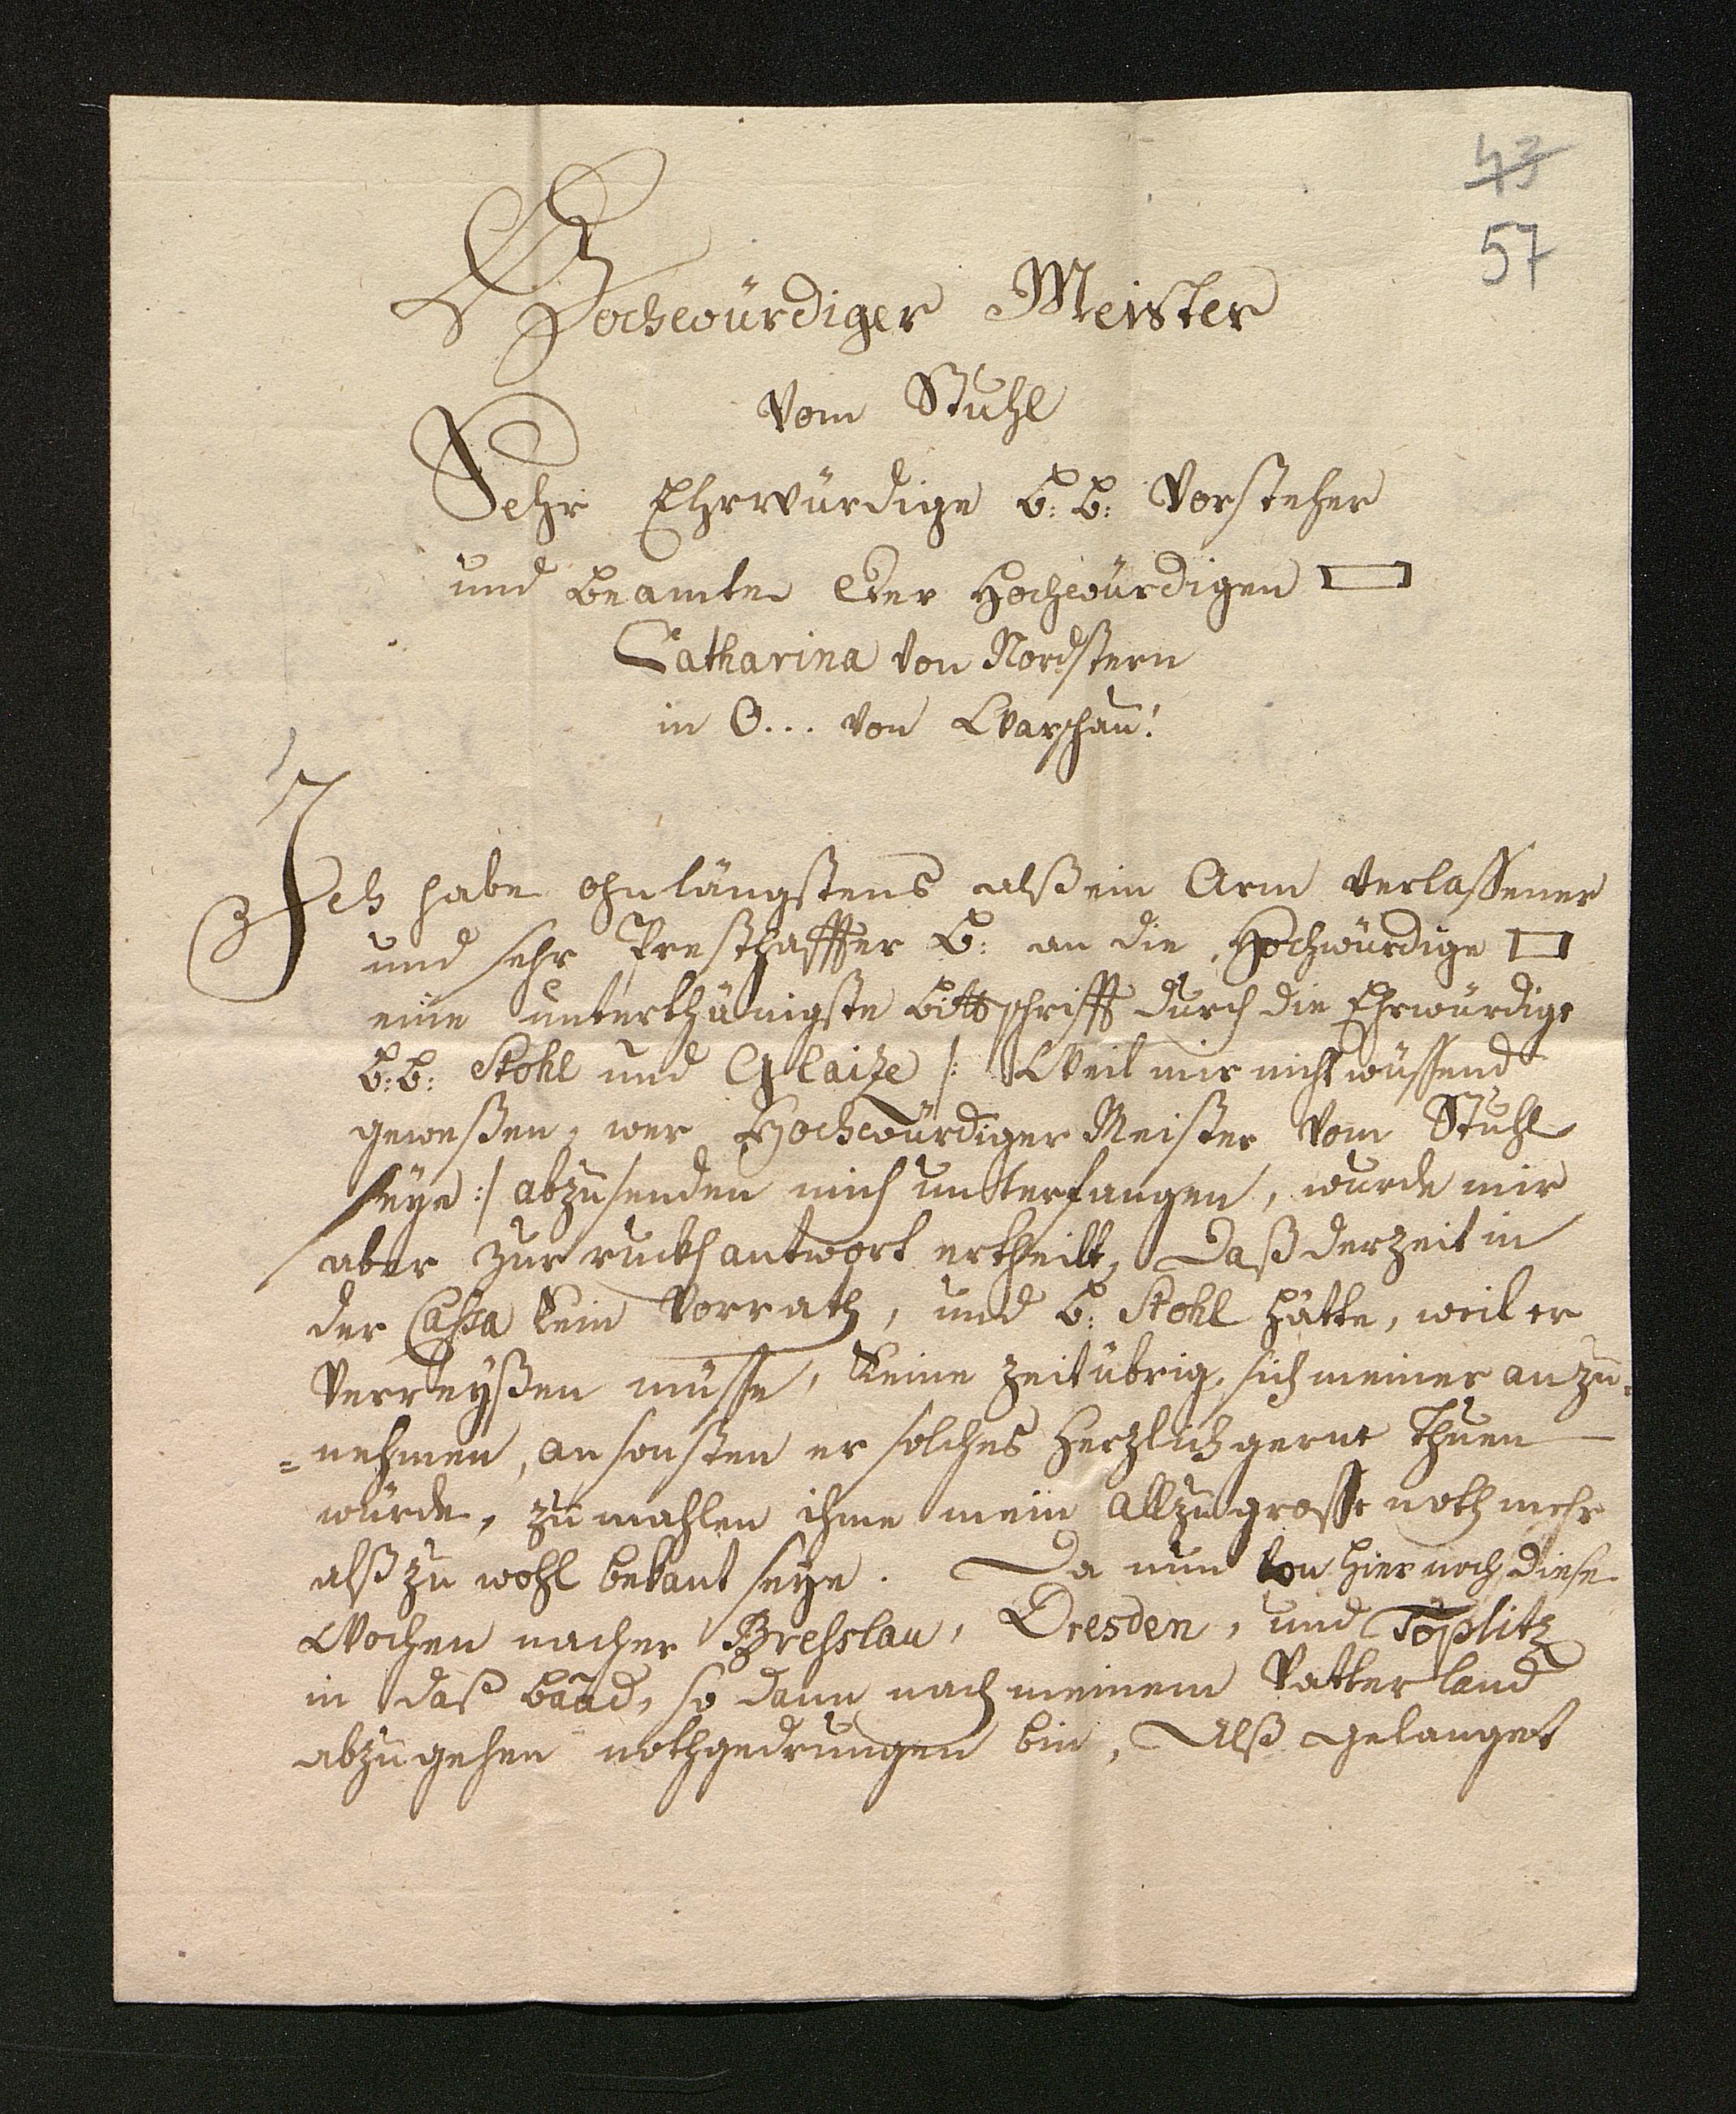 43
57
Hochwürdiger Meister
Vom Stuhl
Sehr Ehrwürdige b: b: Vorsteher
und beamte Der Hochwürdigen ▭
Catharina von Nordstern
in O... von Warschau!
Ich habe ohnlängstens alß ein Arm verlassener
und sehr Presthaffter b: an die Hochwürdige ▭
eine unterthänigste bittschrifft durch die Ehrwürdige
b: b: Stohl und Glaize /: Weil mir nicht wüssend
geweßen, wer Hochwürdiger Meister Vom Stuhl
seye :/ abzusenden mich unterfangen, wurde mir
aber zur ruckhantwort ertheilt, Daß derzeit in
der Cassa kein Vorrath, und b: Stohl hätte, weil er
Verreyßen müsse, keine zeit übrig, sich meiner anzu-
=nehmen, ansonsten er solches herzlich gerne thuen
würde, zumahlen ihme mein allzugrosse noth mehr
alß zu wohl bekant seye. Da nun von hier noch diese
Wochen nacher Bresslau, Dresden, und Töplitz
in daß baad, so dann nach meinem Vatterland
abzugehen nothgedrungen bin, Alß gelanget